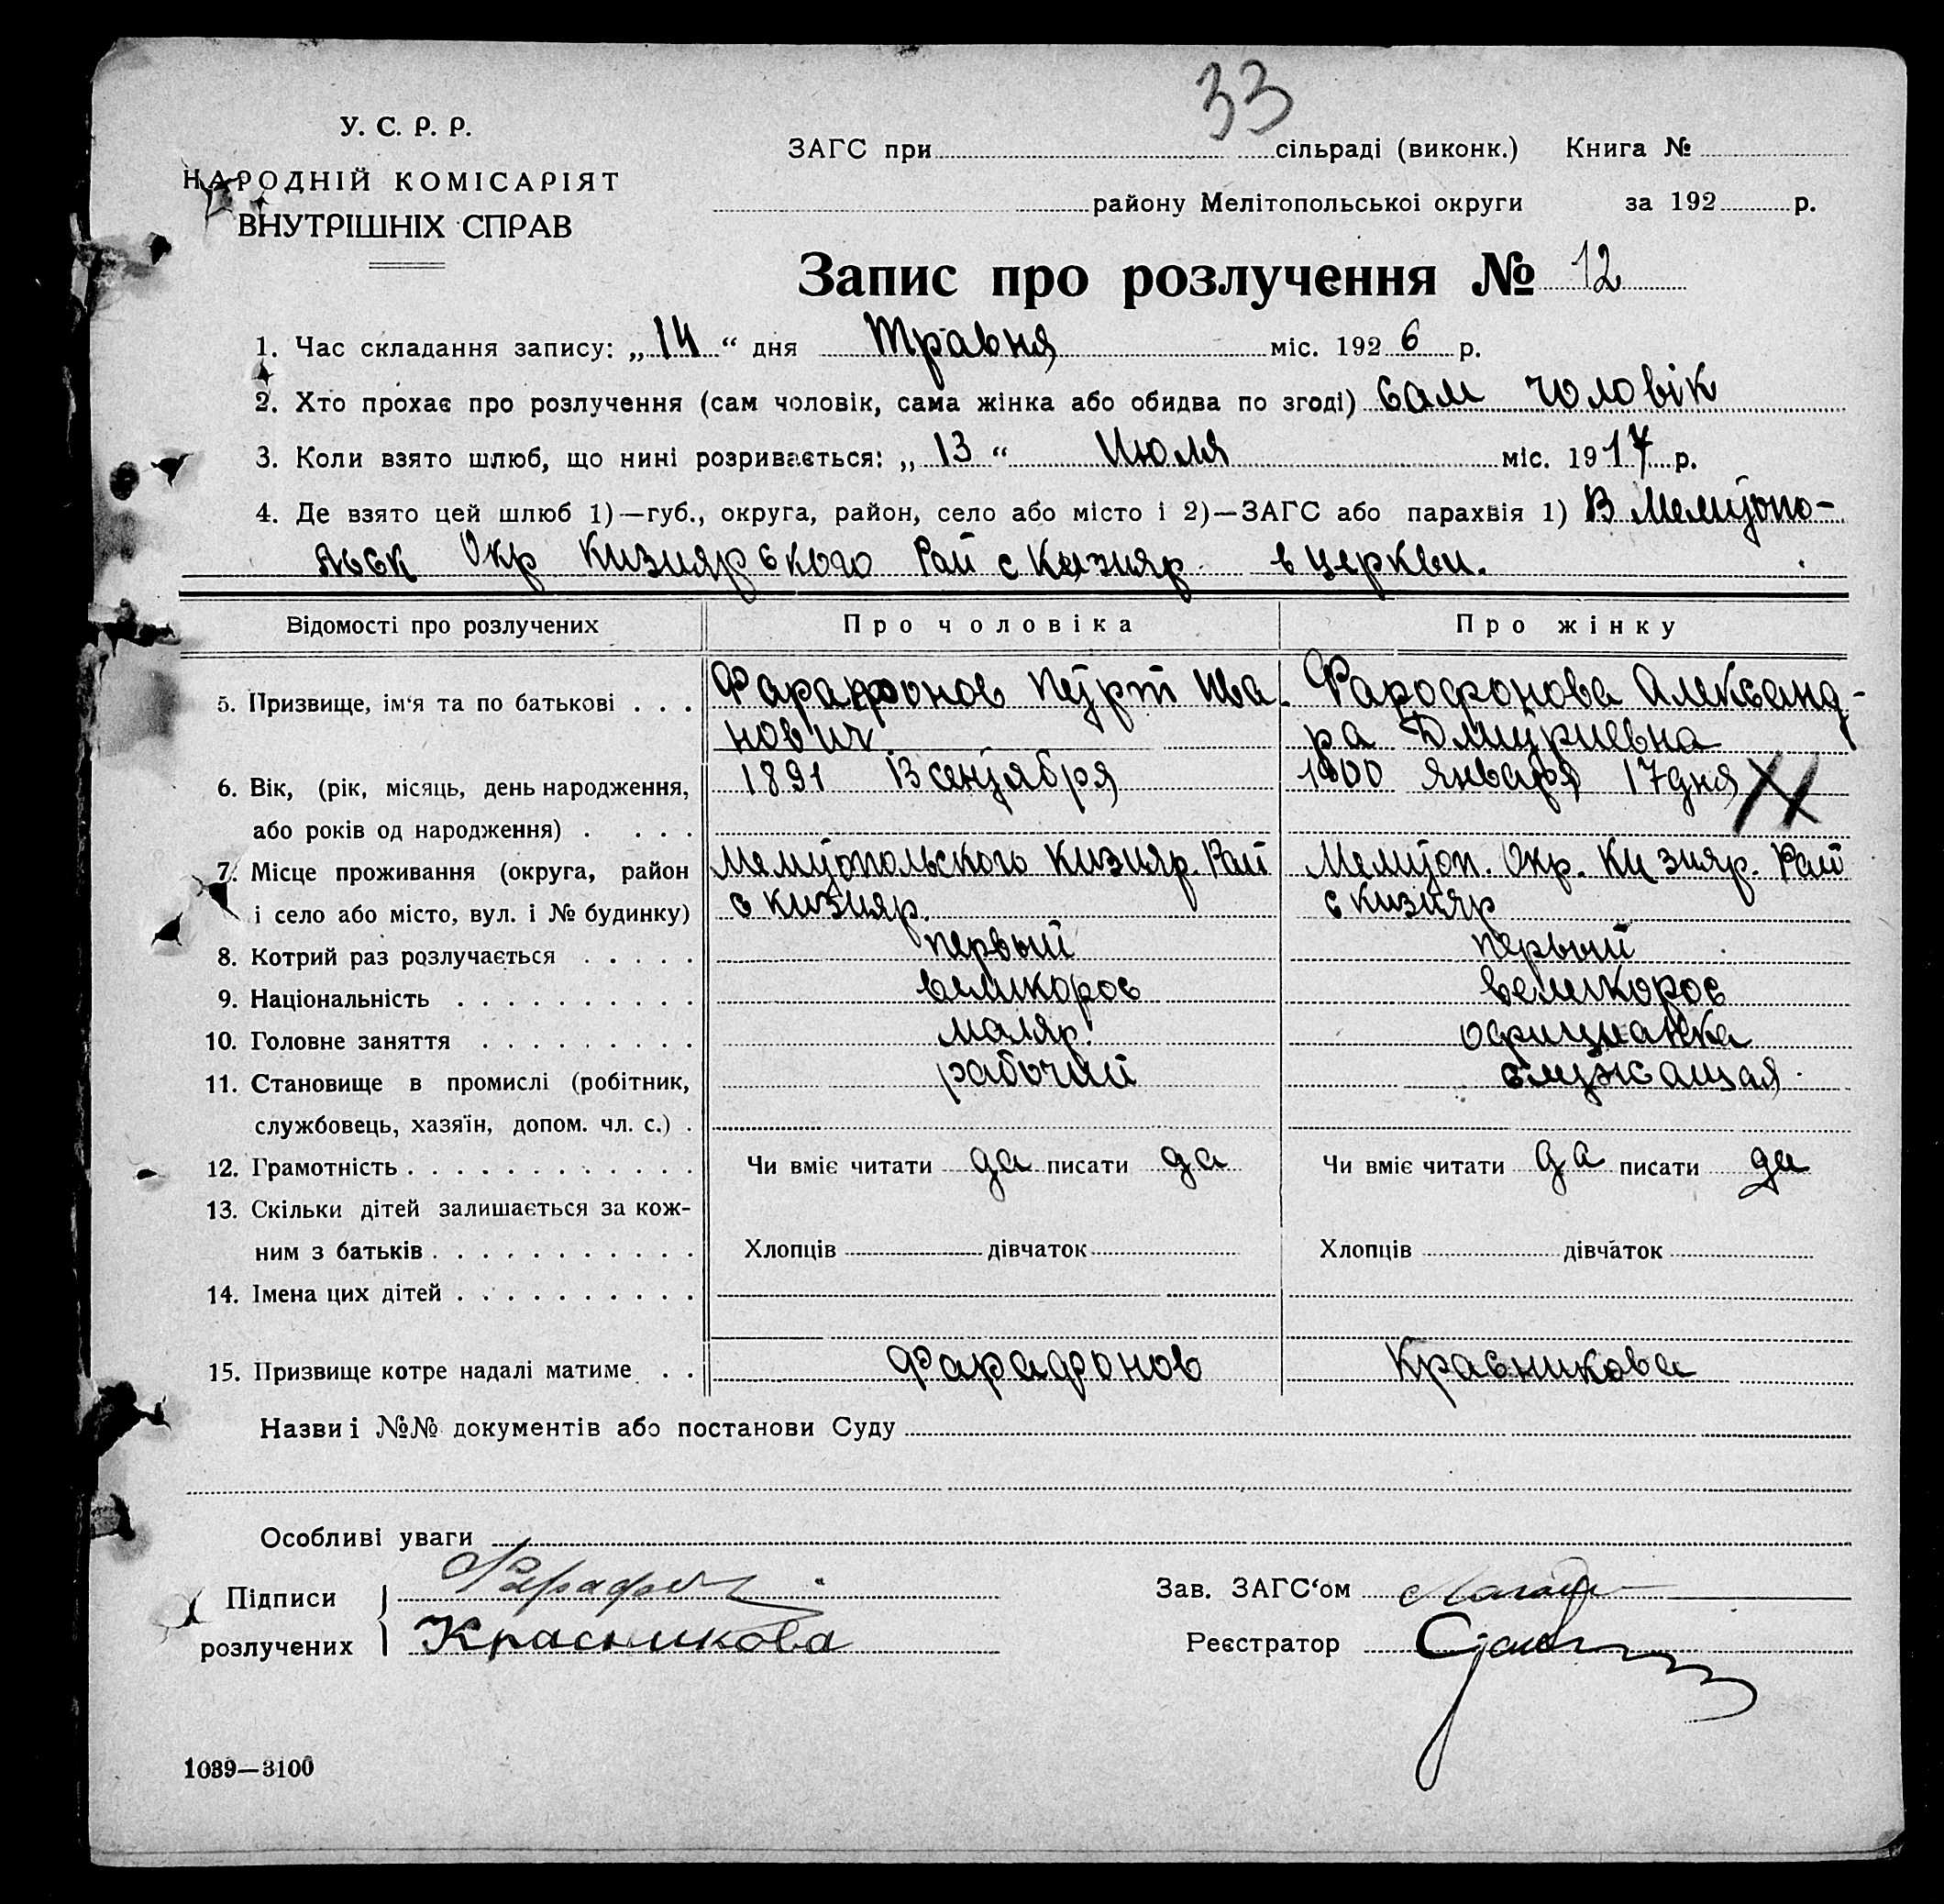 33
У. С. Р. Р.
НАРОДНІЙ КОМІСАРІЯТ
ВНУТРІШНІХ СПРАВ
ЗАГС при сільраді (виконк.) Книга №
району Мелітопольської округи за 192 р.
Запис про розлучення № 12
1. Час складання запису: „14“ дня Травня міс. 1926 р.
2. Хто прохає про розлучення (сам чоловік, сама жінка або обидва по згоді) Сам чоловік
3. Коли взято шлюб, що нині розривається: „13“ Июля міс. 1917 р.
4. Де взято цей шлюб 1)—губ., округа, район, село або місто і 2)—ЗАГС або парахвія 1) В Мелитопо-
льск Окр Кизиярского Рай с Кизияр в церкви.
Відомості про розлучених Про чоловіка Про жінку
5. Призвище, ім'я та по батькові . . . Фарафонов Ива Фарофонова Александ-
нович ра Дмитриевна
6. Вік, (рік, місяць, день народження, 1891 13 сентября 1900 января 17 дня
або років од народження) . . . .
7. Місце проживання (округа, район Мелитопольского Кизияр. Рай Мелитоп. Окр. Кизияр. Рай
і село або місто, вул. і № будинку) с Кизияр. с Кизияр
8. Котрий раз розлучається . . . . . первый первый
9. Національність . . . . . . . . . . великорос великорос
10. Головне заняття . . . . . . . . . маляр. официанка
11. Становище в промислі (робітник, рабочий служащая
службовець, хазяїн, допом. чл. с.) .
12. Грамотність . . . . . . . . . . . . Чи вміє читати да писати да Чи вміє читати да писати да
13. Скільки дітей залишається за кож-
ним з батьків . . . . . . . . . . . Хлопців дівчаток Хлопців дівчаток
14. Імена цих дітей . . . . . . . . . .
15. Призвище котре надалі матиме . . Фарафонов Красникова
Назви і №№ документів або постанови Суду
Особливі уваги
Підписи Зав. ЗАГС‘ом
розлучених Красникова Реєстратор
1039—3100